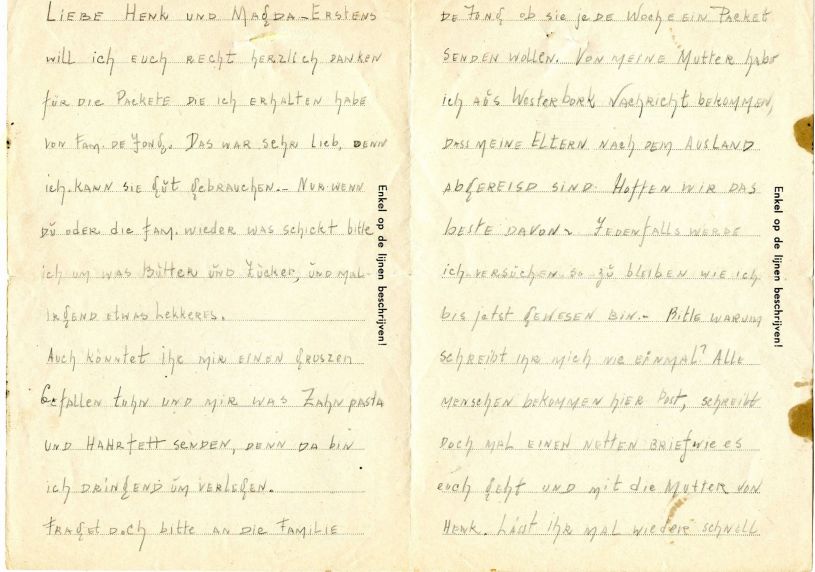 Liebe Henk und Magda – Erstens
will ich euch recht herzlich danken
für die Packete die ich erhalten habe
von Fam. de Jong. Das war sehr lieb, denn
ich kann sie gut gebrauchen. – Nur wenn
Du oder die Fam. wieder was schickt bitte
ich um was Butter und Zucker, und mal
irgend etwas Lekkeres.
Auch könntet ihr mir einen groszen
Gefallen tuhn und mir was Zahnpasta
und Haarfett senden, denn da bin
ich dringend um verlegen.
Fraget doch bitte an die Familie
Enkel op de lijnen beschrijven!
de Jong ob sie jede Woche ein Packet
senden wollen. Von meine Mutter habe
ich aus Westerbork Nachricht bekommen,
dass meine Eltern nach dem Ausland
abgereisd sind. Hoffen wir das
beste davon. Jedenfalls werde
ich versuchen so zu bleiben wie ich
bis jetst gewesen bin. – Bitte warum
schreibt ihr mich nie einmal? Alle
menschen bekommen hier Post, schreibt
doch mal einen netten Brief wie es
euch geht und mit die Mutter von
Henk. Lässt ihr mal wieder schnell
Enkel op de lijnen beschrijven!